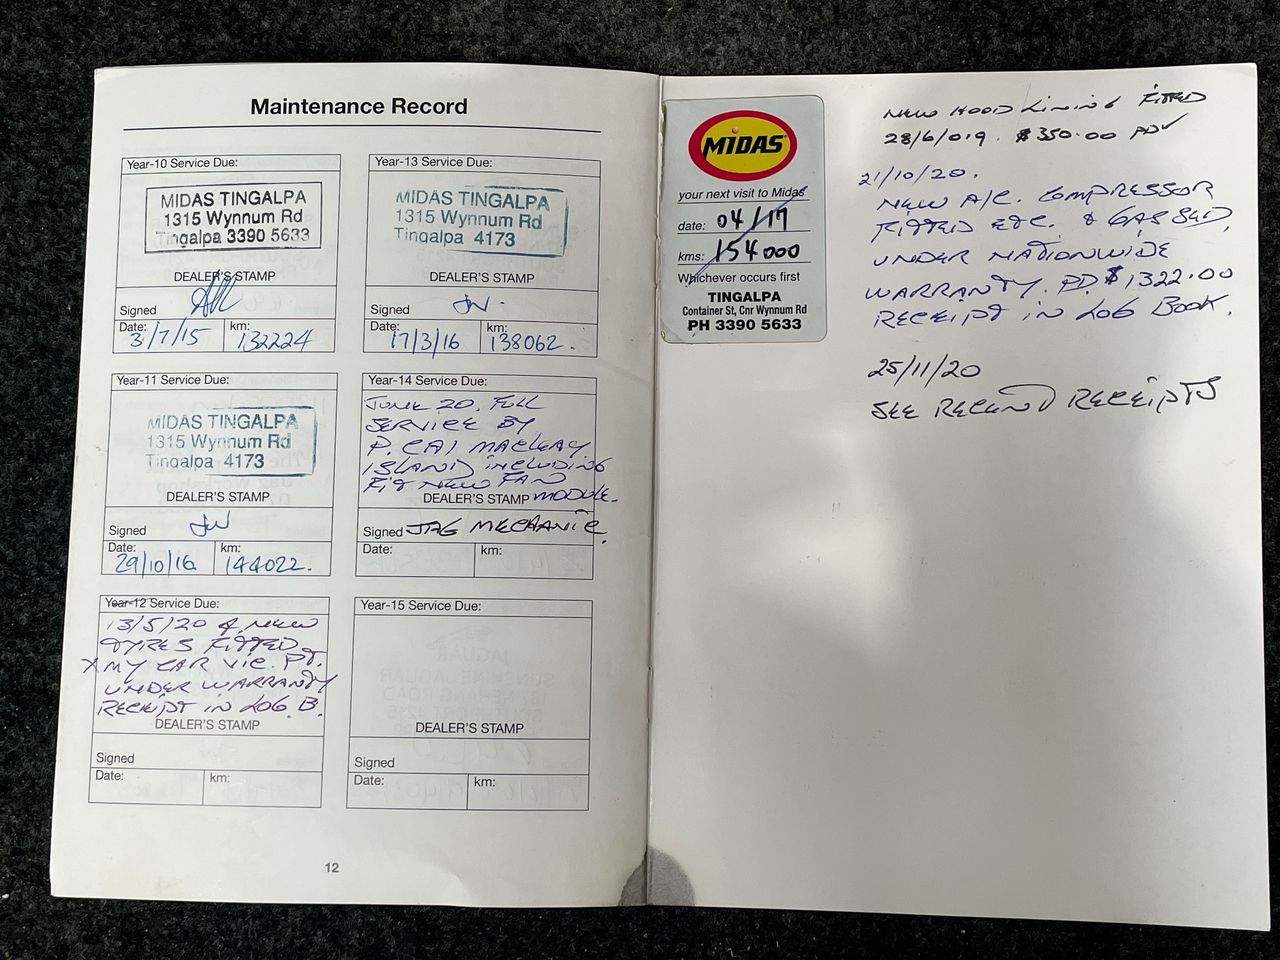 Maintenance Record
Year-10 Service Due:
MIDAS TINGALPA
1315 Wynnum Rd
Tingalpa 3390 5633
DEALER'S STAMP
Signed
Date: km:
31/7/15 132224
Year-11 Service Due:
MIDAS TINGALPA
1315 Wynnum Rd
Tingalpa 4173
DEALER'S STAMP
Signed JW
Date: km:
29/10/16 144022.
Year-12 Service Due:
13/5/20 4 NEW
TYRES FITTED
X MY CAR VIC. PT.
UNDER WARRANTY
RECEIPT IN LOG B.
DEALER'S STAMP
Signed
Date: km:
Year-13 Service Due:
MIDAS TINGALPA
1315 Wynnum Rd
Tingalpa 4173
DEALER'S STAMP
Signed JW.
Date: km:
17/3/16 138062.
Year-14 Service Due:
JUNE 20. FULL
SERVICE BY
P. CAI MACLEAY
ISLAND INCLUDING
FIT NEW FAN
DEALER'S STAMP MODULE.
Signed JAG MECHANIC.
Date: km:
Year-15 Service Due:
DEALER'S STAMP
Signed
Date: km:
12
MIDAS
your next visit to Midas
date: 04/17
kms: 154000
Whichever occurs first
TINGALPA
Container St, Cnr Wynnum Rd
PH 3390 5633
NEW HOOD LINING FITTED
28/6/019. $350.00 PD
21/10/20.
NEW A/C. COMPRESSOR
FITTED ETC. & GAS
UNDER NATIONWIDE
WARRANTY. PD $1322.00
RECEIPT IN LOG BOOK.
25/11/20
SEE RECENT RECEIPTS